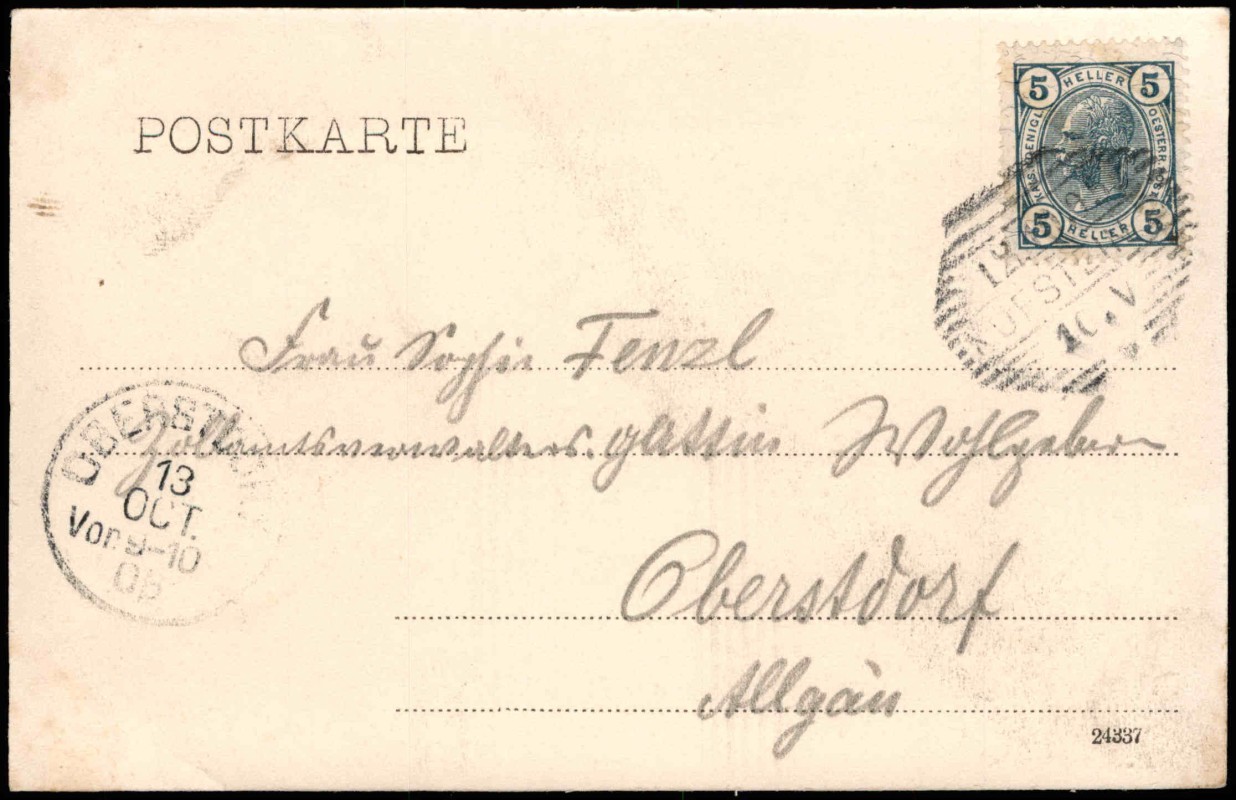 POSTKARTE
5 HELLER 5
KAIS. KOENIGL. OESTERR. POST
5 HELLER 5
12
KUFSTEIN
10. V
Frau Sophie Fenzl
Zollamtsverwalters. gattin Wohlgeboren
OBERSTDORF
13
OCT.
Vor. 9-10
Oberstdorf
Allgäu
24337